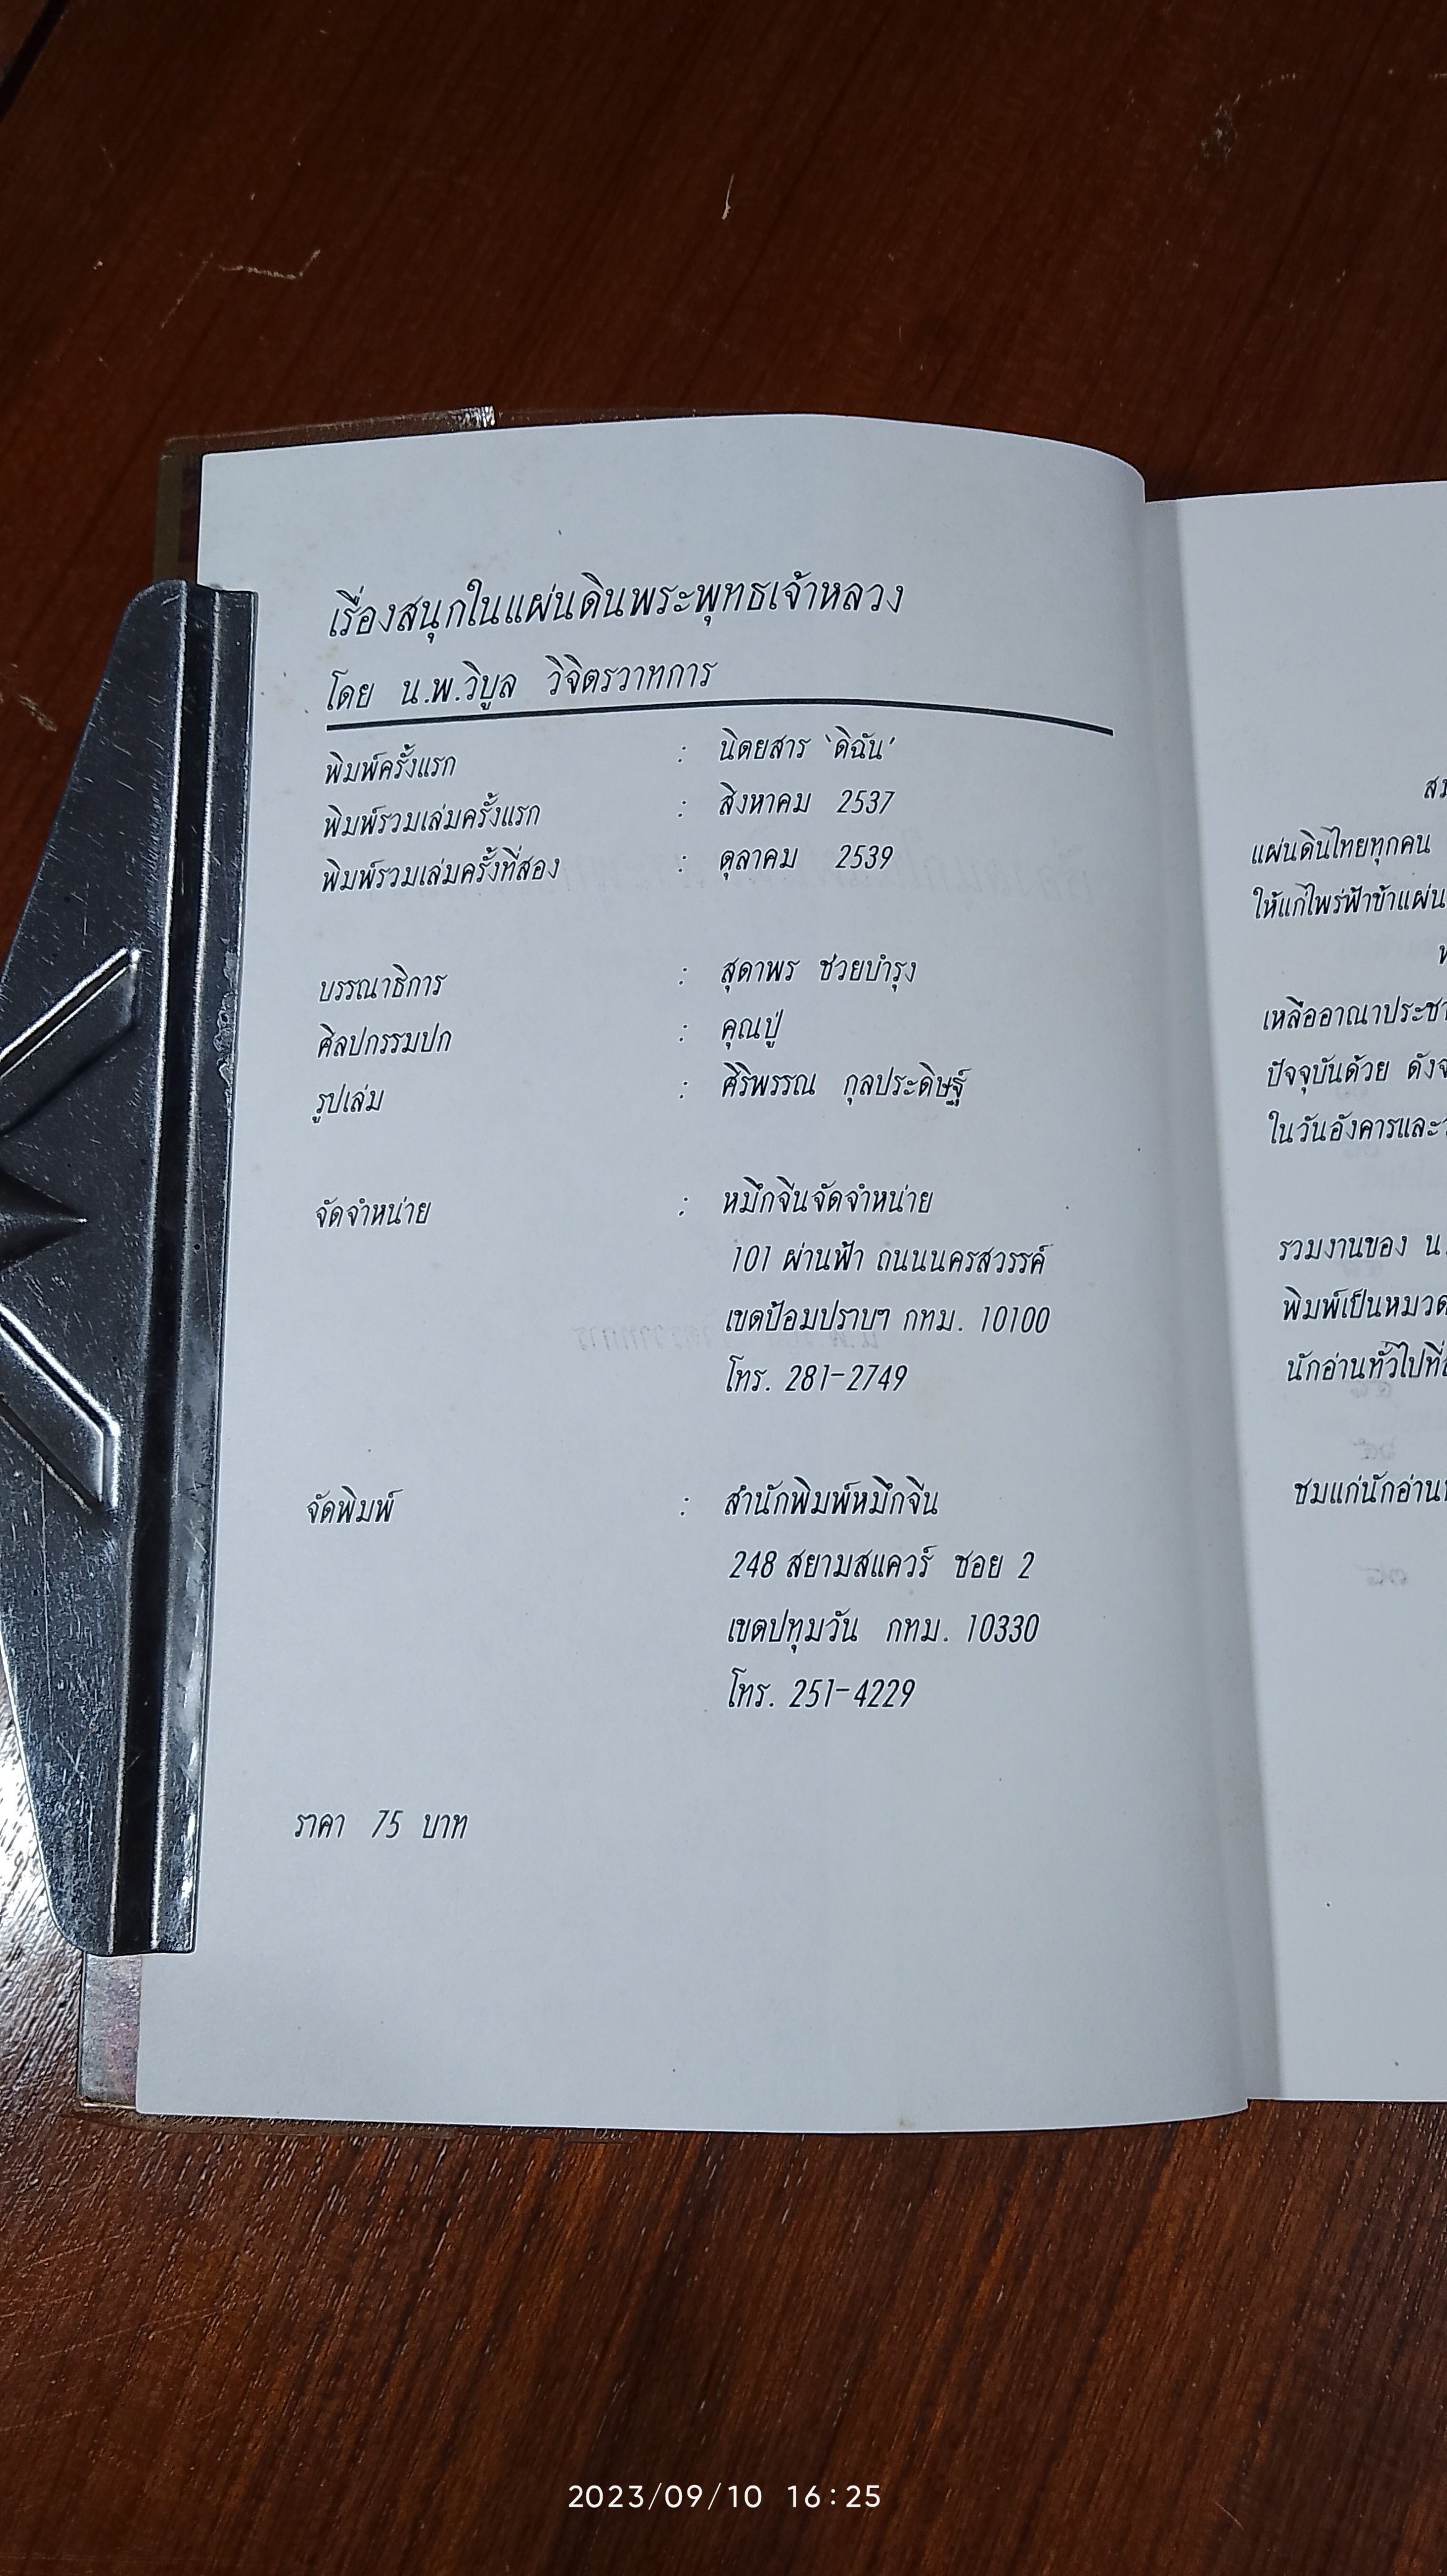 เรื่องสนุกในแผ่นดินพระพุทธเจ้าหลวง
โดย น.พ.วิบูล วิจิตรวาทการ
พิมพ์ครั้งแรก : นิตยสาร 'ดิฉัน'
พิมพ์รวมเล่มครั้งแรก : สิงหาคม 2537
พิมพ์รวมเล่มครั้งที่สอง : ตุลาคม 2539
บรรณาธิการ : สุดาพร ช่วยบำรุง
ศิลปกรรมปก : คุณปู่
รูปเล่ม : ศิริพรรณ กุลประดิษฐ์
จัดจำหน่าย : หมึกจีนจัดจำหน่าย
101 ผ่านฟ้า ถนนนครสวรรค์
เขตป้อมปราบฯ กทม. 10100
โทร. 281-2749
จัดพิมพ์ : สำนักพิมพ์หมึกจีน
248 สยามสแควร์ ซอย 2
เขตปทุมวัน กทม. 10330
โทร. 251-4229
ราคา 75 บาท
แผ่นดินไทยทุกคน
ให้แก่ไพร่ฟ้าข้าแผ่น
เหลืออาณาประชา
ปัจจุบันด้วย ดัง
ในวันอังคารและ
รวมงานของ น.
พิมพ์เป็นหมวด
นักอ่านทั่วไปที่
ชมแก่นักอ่าน
2023/09/10 16:25